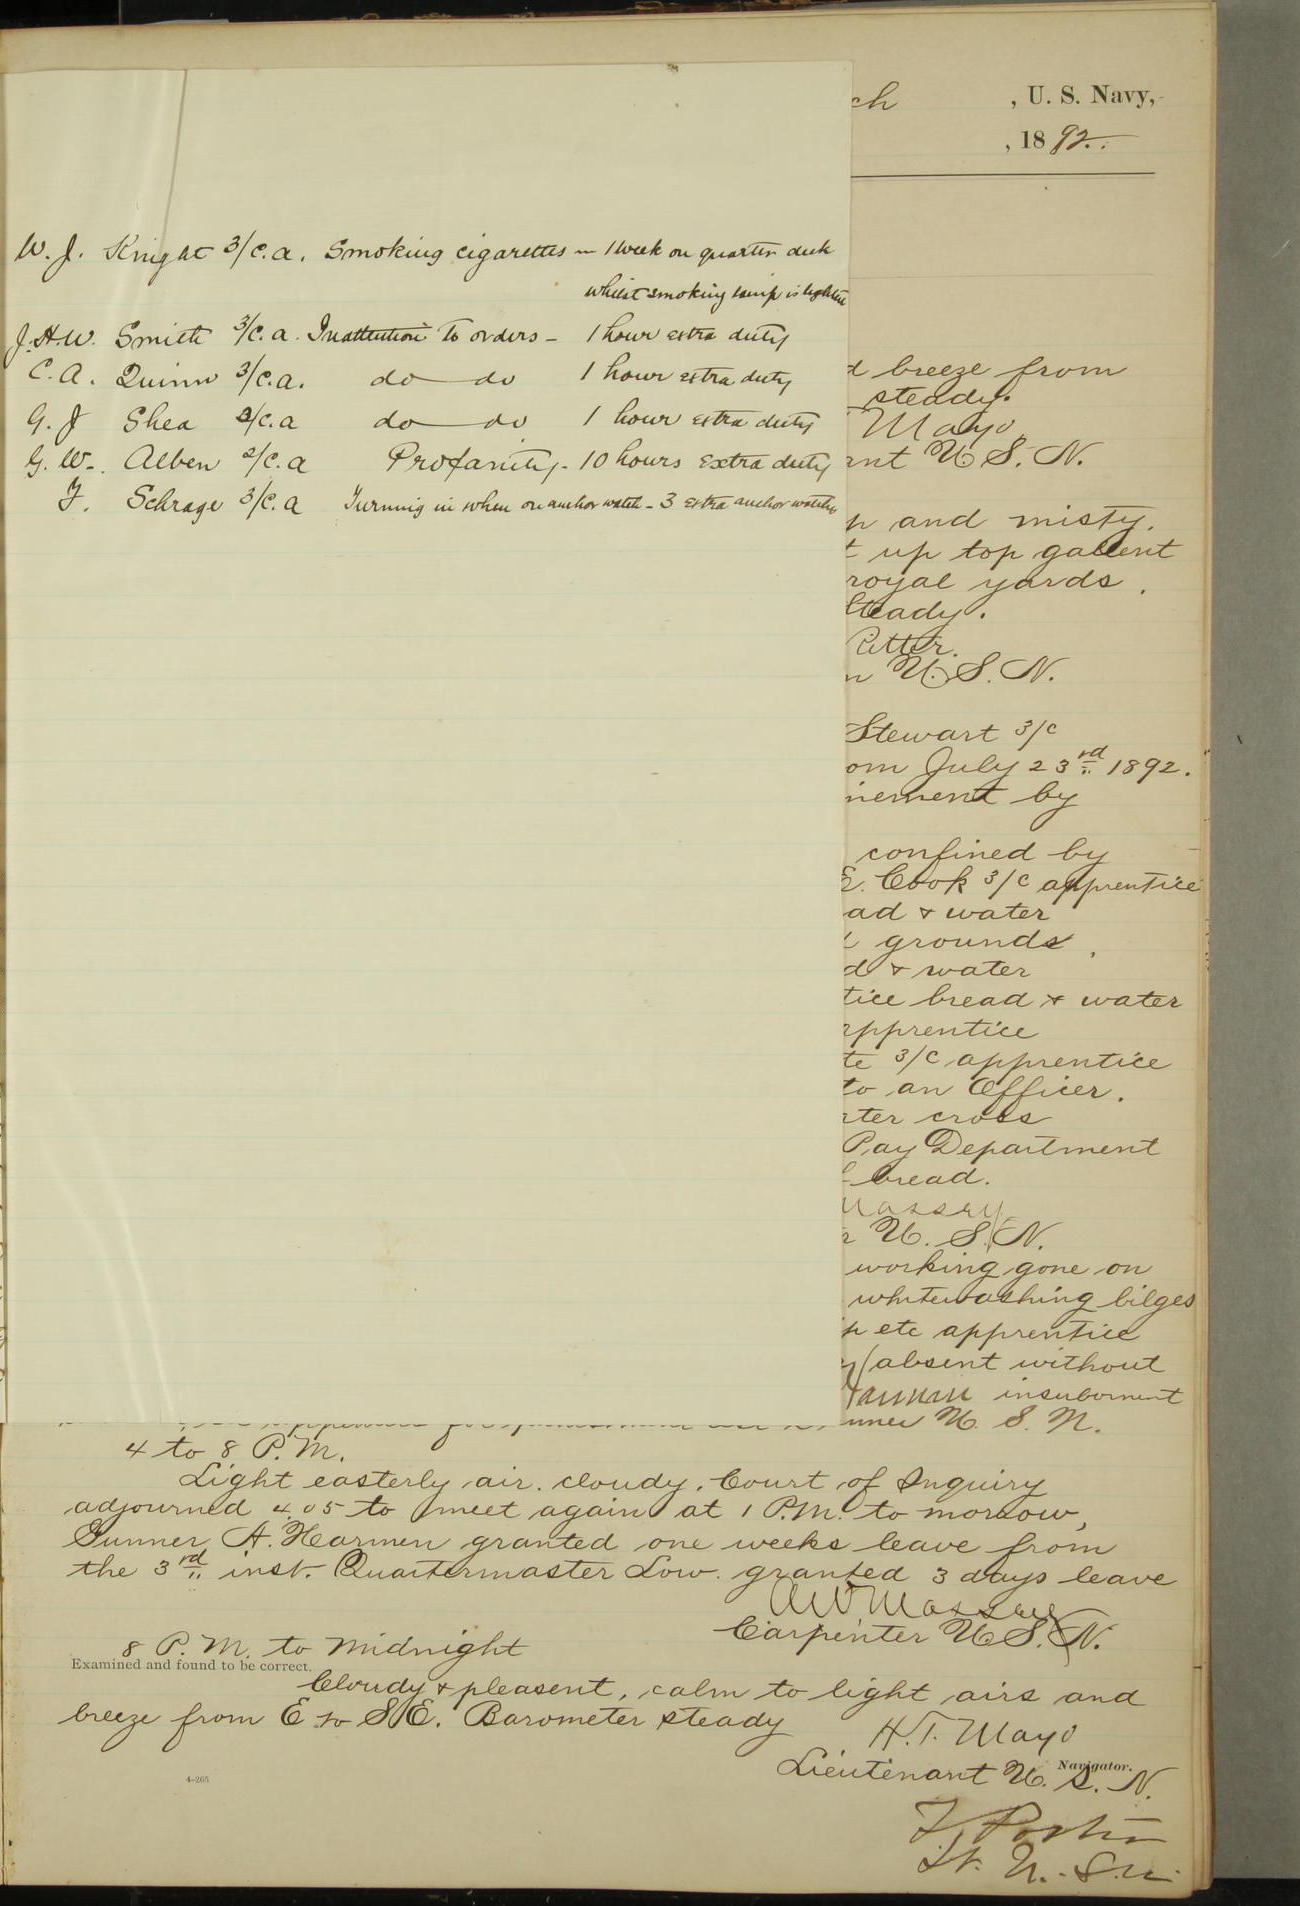 ch , U. S. Navy,
, 1892.
W. J. Knight 3/c. a. Smoking cigarettes — 1 week on quarter deck
whilst smoking lamp is lighted
J. H. W. Smith 3/c. a. Inattention to orders — 1 hour extra duty
C. A. Quinn 3/c. a. do — do 1 hour extra duty
G. J Shea 2/c. a do — do 1 hour extra duty
G. W. Alben 2/c. a Profanity. 10 hours Extra duty
F. Schrage 3/c. a Turning in when on anchor watch — 3 extra anchor watches
d breeze from
steady.
Mayo
ant U. S. N.
p and misty.
t up top gallent
royal yards.
steady.
Ritter.
n U. S. N.
Stewart 3/c
om July 23rd 1892.
nement by
confined by
E. Cook 3/c apprentice
ad & water
grounds.
d & water
tice bread & water
apprentice
te 3/c apprentice
to an Officer.
ter cross
Pay Department
bread.
Massey
r U. S. N.
working gone on
whitewashing bilges
p etc apprentice
absent without
insubornent
unner U. S. N.
4 to 8 P. M.
Light easterly air. cloudy. Court of Inquiry
adjourned 4.05 to meet again at 1 P.M. to morrow,
Gunner A. Harmen granted one weeks leave from
the 3rd inst. Quartermaster Low. granted 3 days leave
Massey
Carpenter U. S. N.
8 P. M. to Midnight
Examined and found to be correct.
Cloudy & pleasent, calm to light airs and
breeze from E to SE. Barometer steady
H. T. Mayo
Lieutenant U. S. N.
Navigator.
4–265
Lt. U. S. N.